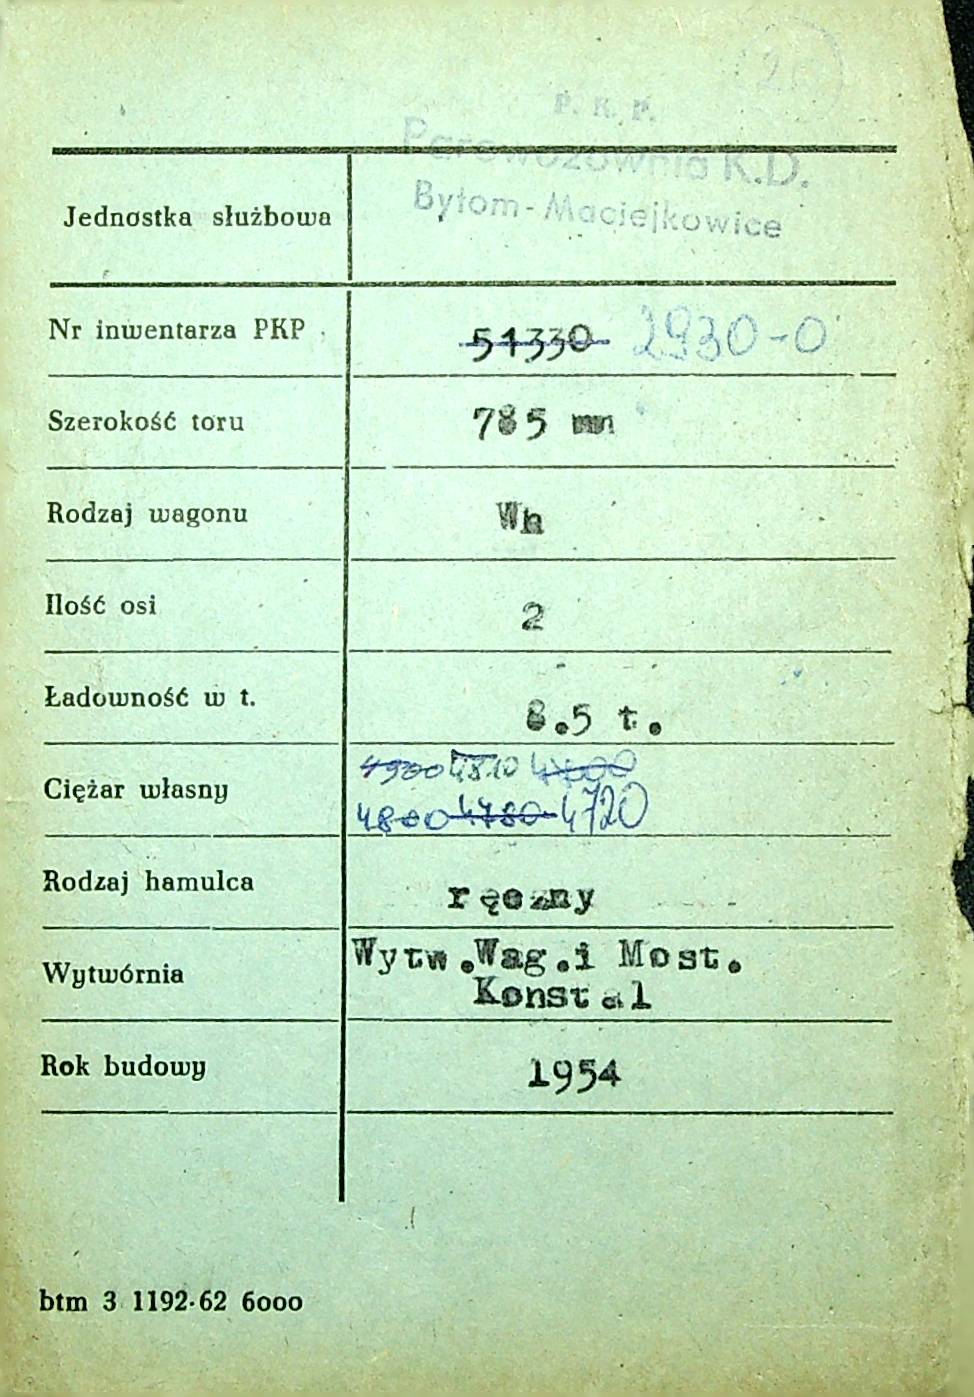 P. K. P.
Parowozownia K.D.
Bytom-Maciejkowice
Jednostka służbowa
Nr inwentarza PKP 51330 2930-0
Szerokość toru 785 mm
Rodzaj wagonu Wh
Ilość osi 2
Ładowność w t. 8.5 t.
4900 4810 4700
Ciężar własny
4800 4780 4720
Rodzaj hamulca ręczny
Wytw.Wag.i Most.
Wytwórnia
Konstal
Rok budowy 1954
btm 3 1192-62 6000